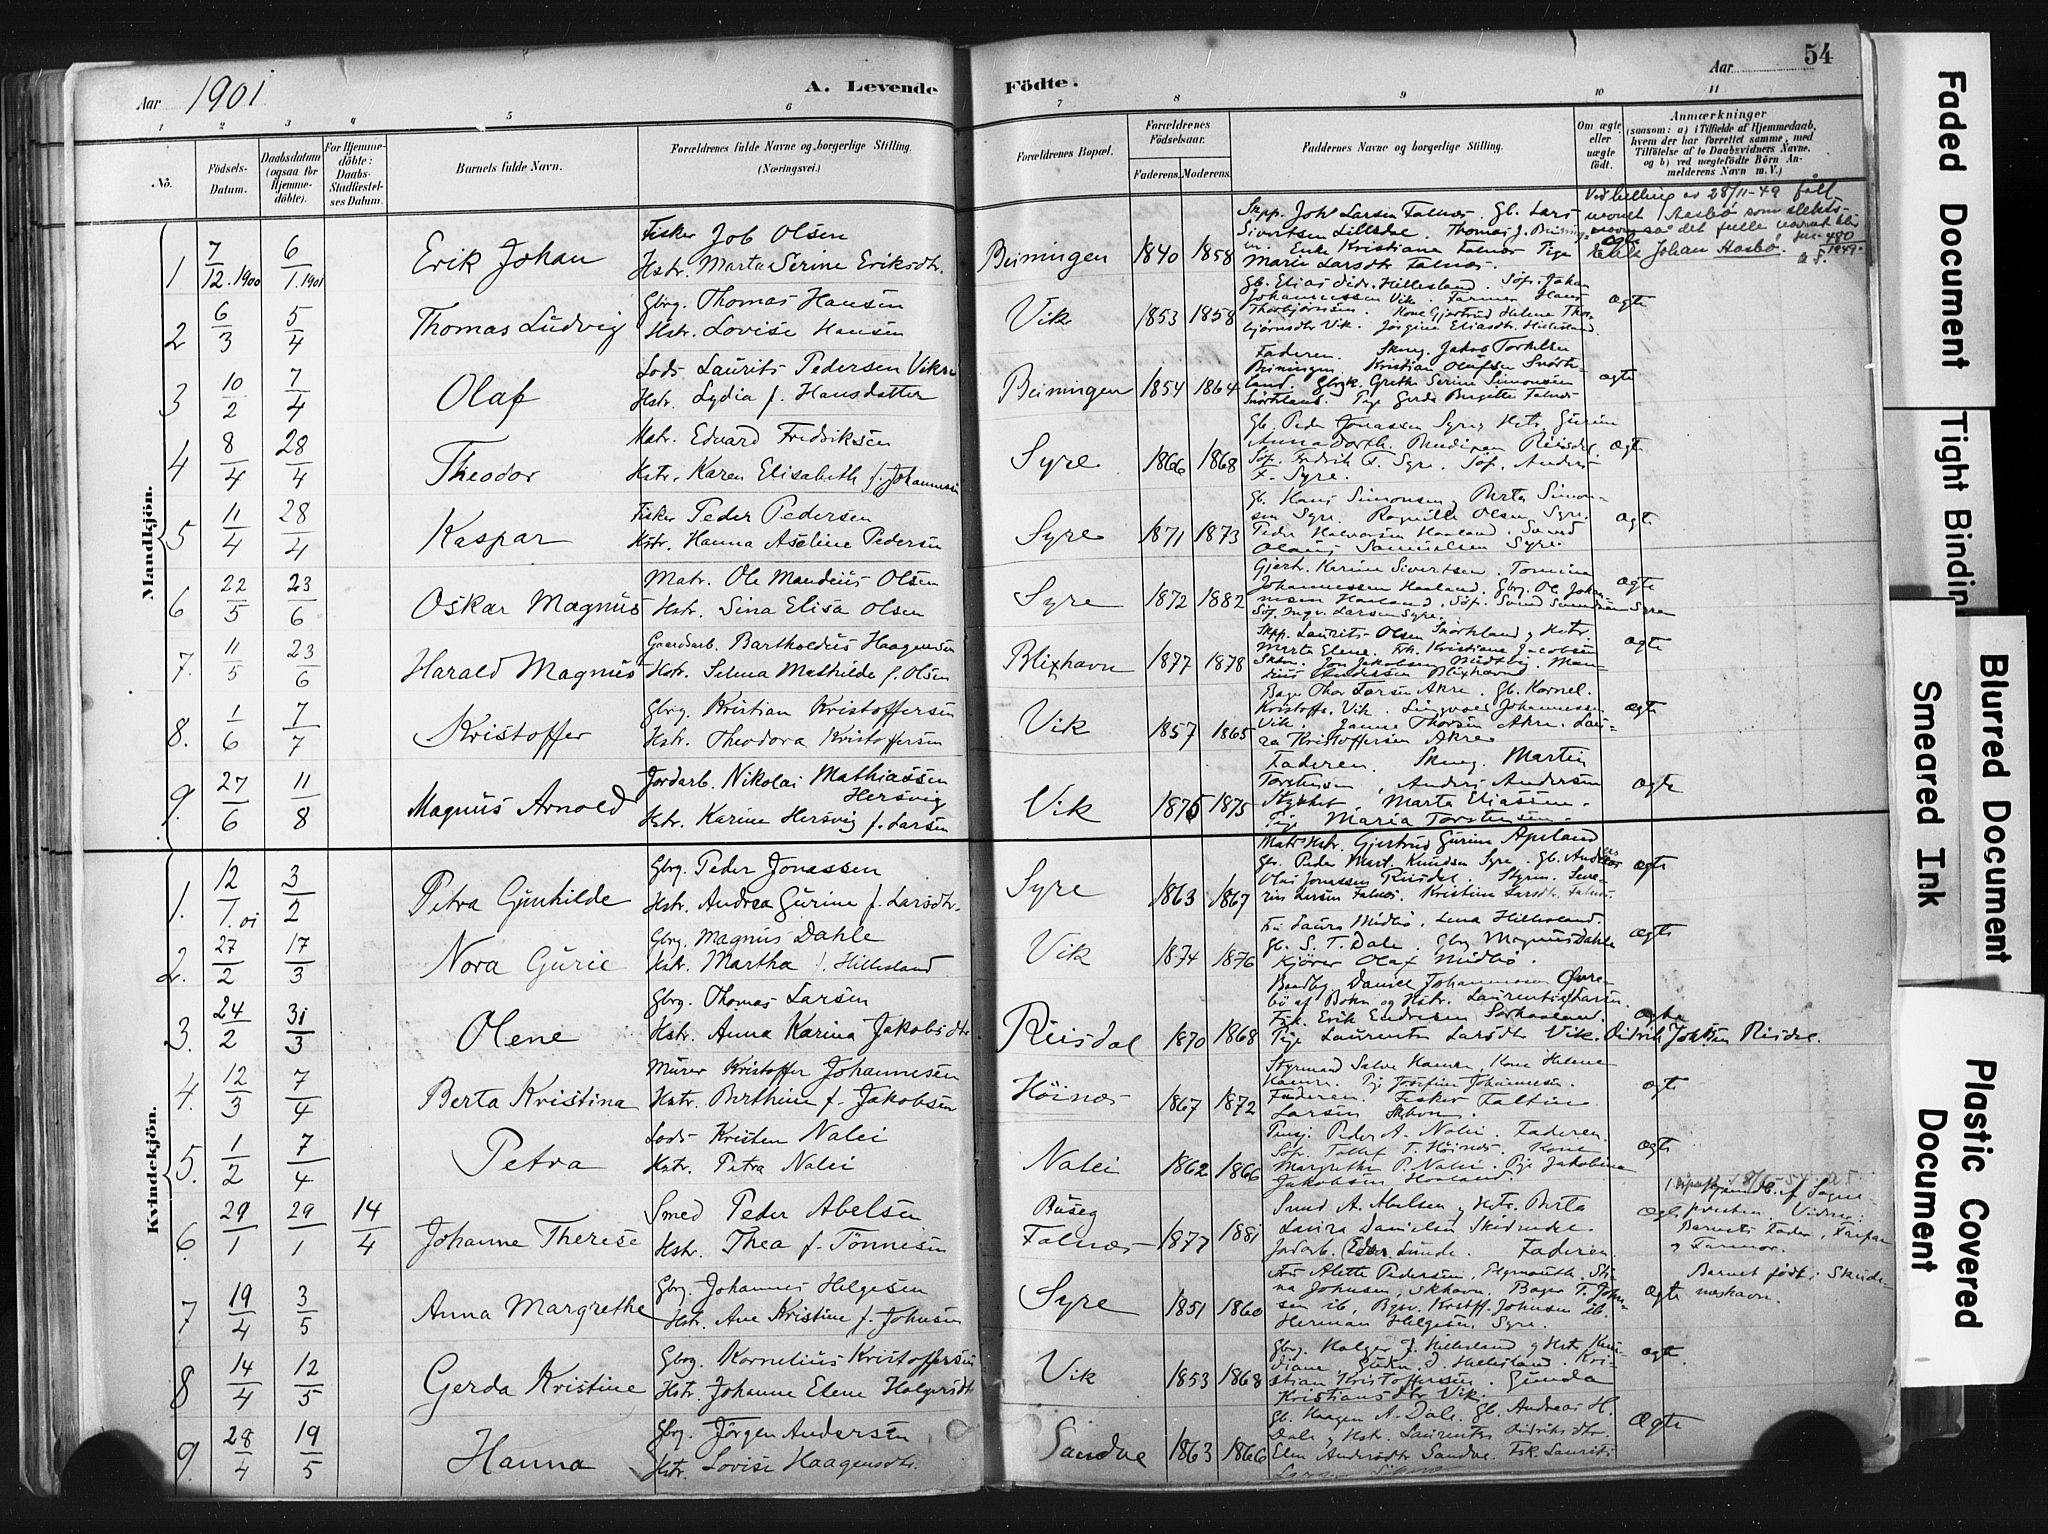 54
Aar 1901 A. Levende Födte. Aar
1 2 3 4 5 6 7 8 9 10 11
No. Födsels-Datum. Daabsdatum (ogsaa for Hjemme-döbte). For Hjemme-döbte: Daabs-Stadfæstel-ses Datum. Barnets fulde Navn. Forældrenes fulde Navne og borgerlige Stilling. (Næringsvei.) Forældrenes Bopæl. Forældrenes Födselsaar. Faderens. Moderens. Faddernes Navne og borgerlige Stilling. Om ægte eller uægte födt. Anmærkninger (saasom: a) i Tilfælde af Hjemmedaab, hvem der har forrettet samme, med Tilföielse af to Daabsvidners Navne, og b) ved uægtefödte Börn An-melderens Navn m. V.)
Mandkjön.
1 7/12.1900 6/1.1901 Erik Johan Fisker Job Olsen
Hstr. Marta Serine Eriksdtr. Beiningen 1840 1858 Skpp. Joh Larsen Falnæs. Gb. Lars
Sivertsen Lillesdal. Thomas J. Beining-
en. Enke Kristiane Falnæs Pige
Marie Larsdtr Falnæs. ægte
Ved billing av 28/11-49
Aasbö som slekts-
det fulle navnet blir
Erik Johan Aasbö.
2 6/3 5/4 Thomas Ludvig Gbrg. Thomas Hansen
Hstr. Lovise Hansen Vik 1853 1858 Gb. Elias Didr. Hillesland. Söf. Johan
Johannessen Vik. Farmer Hans
Thorbjörnsen. Kone Gjertrud Helene Thor-
björnsdtr Vik. Jörgine Eliasdtr. Hillesland. ægte
3 10/2 7/4 Olaf Lods Laurits Pedersen Vikre
Hstr. Lydia f. Hansdatter Beiningen 1854 1864 Faderen. Skmg. Jakob Torkelsen
Beiningen. Kristian Olufsen Snörte-
land. Gbrgk. Grethe Serine Simonsen
Snörteland. Pige Gerda Birgitte Falnæs ægte
4 8/4 28/4 Theodor Matr. Edvard Fredriksen
Hstr. Karen Elisabeth f. Johannessen Syre 1866 1868 Gb. Peder Jonassen Syre, Hstr. Gurine
Anna Dorth.
Söf. Fredrik F. Syre. Söf. Andreas
F. Syre. ægte
5 11/4 28/4 Kaspar Fisker Peder Pedersen
Hstr. Hanna Aseline Pedersen Syre 1871 1873 Gb. Hans Simonsen og Berta Simon-
sen Syre. Ragnille Olsen Syre.
Peder Halvorsen Haaland. Svend
Olaus Samuelsen Syre. ægte
6 22/5 23/6 Oskar Magnus Matr. Ole Mandeius Olsen
Hstr. Sina Elisa Olsen Syre 1872 1882 Gjertr. Karine Sivertsen. Tomine
Johannessen Haaland. Gbrg. Ole Johan-
nesen Haaland. Söf. Svend Svendsen Syre
Söf. Ingv. Larsen Syre. ægte
7. 11/5 23/6 Harald Magnus Gaardarb. Bartholdus Haagensen
Hstr. Selma Mathilde f. Olsen Blixhavn 1877 1878 Skpp. Laurits Olsen Snörteland og Hstr.
Marta Elene. Frk. Kristiane Jacobsen
Skbvn. Jon Jakobsen Midtbö. Man-
dius Andersen Blixhavn ægte
8. 1/6 7/7 Kristoffer Gbrg. Kristian Kristoffersen
Hstr. Theodora Kristoffersen Vik 1857 1865 Bager Thor Larsen Akre. Gb. Kornel.
Kristoffs. Vik. Lingvoe Johannessen
Vik. Janne Thorsen Akre. Lau-
ra Kristoffersen Akre ægte
9. 27/6 11/8 Magnus Arnold Jordarb. Nikolai Mathiassen
Hersvig
Hstr. Karine Hersvig f. Larsen Vik 1875 1875 Faderen. Skmg. Martin
Torstensen, Anders Andersen
Stykket, Marta Eliassen.
Pige Maria Torstensen. ægte
Kvindekjön.
1. 12/1.01 3/2 Petra Gunhilde Gbrg. Peder Jonassen
Hstr. Andrea Gurine f. Larsdtr. Syre 1863 1867 Matr Hstr. Gjertrud Gurine Apeland
Gbr. Peder Mart. Knudsen Syre. Gb. Andreas
Olai Jonassen Reisdal. Styrm. Seve-
rin Larsen Falnæs. Kristine Larsdtr. Falnæs. ægte
2. 27/2 17/3 Nora Gurie Gbrg. Magnus Dahle
Hstr. Martha f. Hillesland Vik 1874 1876 Fru Laura Midbö. Lena Hillesland.
Gb. S. T. Dale. Gbrg Magnus Dahle
Kjörer Olaf Midbö. ægte
3. 24/2 31/3 Olene Gbrg. Thomas Larsen
Hstr. Anna Karina Jakobsdtr Reisdal 1870 1868 Daniel Johannessen Övre-
bö af Bokn og Hstr. Laurentse Larsen.
Fsk. Erik Endresen Sörhaaland.
Pige Laurentse Larsdtr Vik. Didrik Johnsen Reisdal. ægte
4. 12/3 7/4 Berta Kristina Murer Kristoffer Johannesen
Hstr. Berthine f. Jakobsen Höinæs 1867 1872 Styrmand Salve Hansen, Kone Helene
Hansen. Pige Josefine Johannesen.
Faderen. Fisker Faltin
Larsen Skbvn. ægte
5. 1/2 7/4 Petra Lods Kristen Nalei
Hstr. Petra Nalei Nalei 1862 1866 Pensj. Peder A. Nalei. Faderen.
Söf. Tollef T. Höinæs. Kone
Margrethe P. Nalei. Pige Jakobine
Jakobsen Haaland. ægte
6. 29/1 29/1 14/4 Johanne Therese Smed Peder Abelsen
Hstr. Thea f. Tönnesen Buseg
Falnæs 1877 1881 Svend A. Abelsen og Hstr. Berta
Laura Danielsen Skudenæs.
Jordarb. Edv. Lunde. Faderen. ægte
Hj.d. af Sogne-
presten. Vidner:
Barnets Fader, Farfar
og Farmor.
Barnet født i Skude-
neshavn.
7 19/4 3/5 Anna Margrethe Gbrg. Johannes Helgesen
Hstr. Ane Kristine f. Johnsen Syre 1851 1860 Fru Alette Pedersen, Plymouth. Sti-
na Johnsen, Skhavn. Bager T. John-
sen ib, Bgsv. Kristff. Johnsen ib.
Herman Helgesen Syre. ægte
8 14/4 12/5 Gerda Kristine Gbrg. Kornelius Kristoffersen
Hstr. Johanne Elene Holgersdtr Vik 1853 1868 Gbrg. Holger J. Hillesland og Hstr. Kri-
stiane, Gudm. J. Hillesland. Kri-
stian Kristoffersen. Gunda
Kristiansdtr Vik. ægte
9. 28/4 19/5 Hanna Gbrg. Jörgen Andersen
Hstr. Lovise Haagensdtr. Sandve 1863 1866 Gb. Haagen A. Dale. Gb. Andreas H.
Dale og Hstr. Laurentse Didriksdtr.
Elen Andersdtr Sandve. Fsk. Laurits
Larsen Ægte
Faded Document
Tight Bindin
Blurred Document
Smeared Ink
Plastic Covered Document